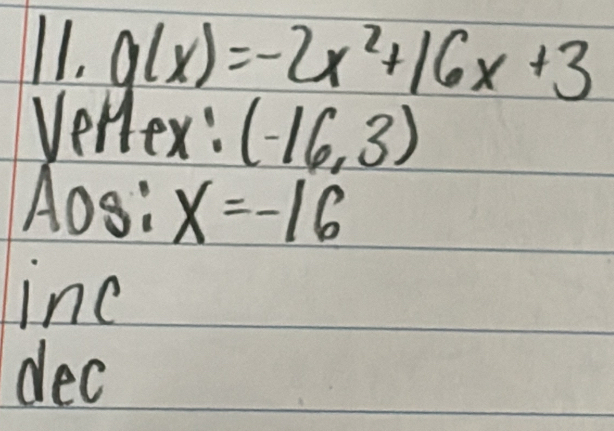 11. g(x)=-2x²+16x+3
Vertex: (-16,3)
Aos: X=-16
inc
dec